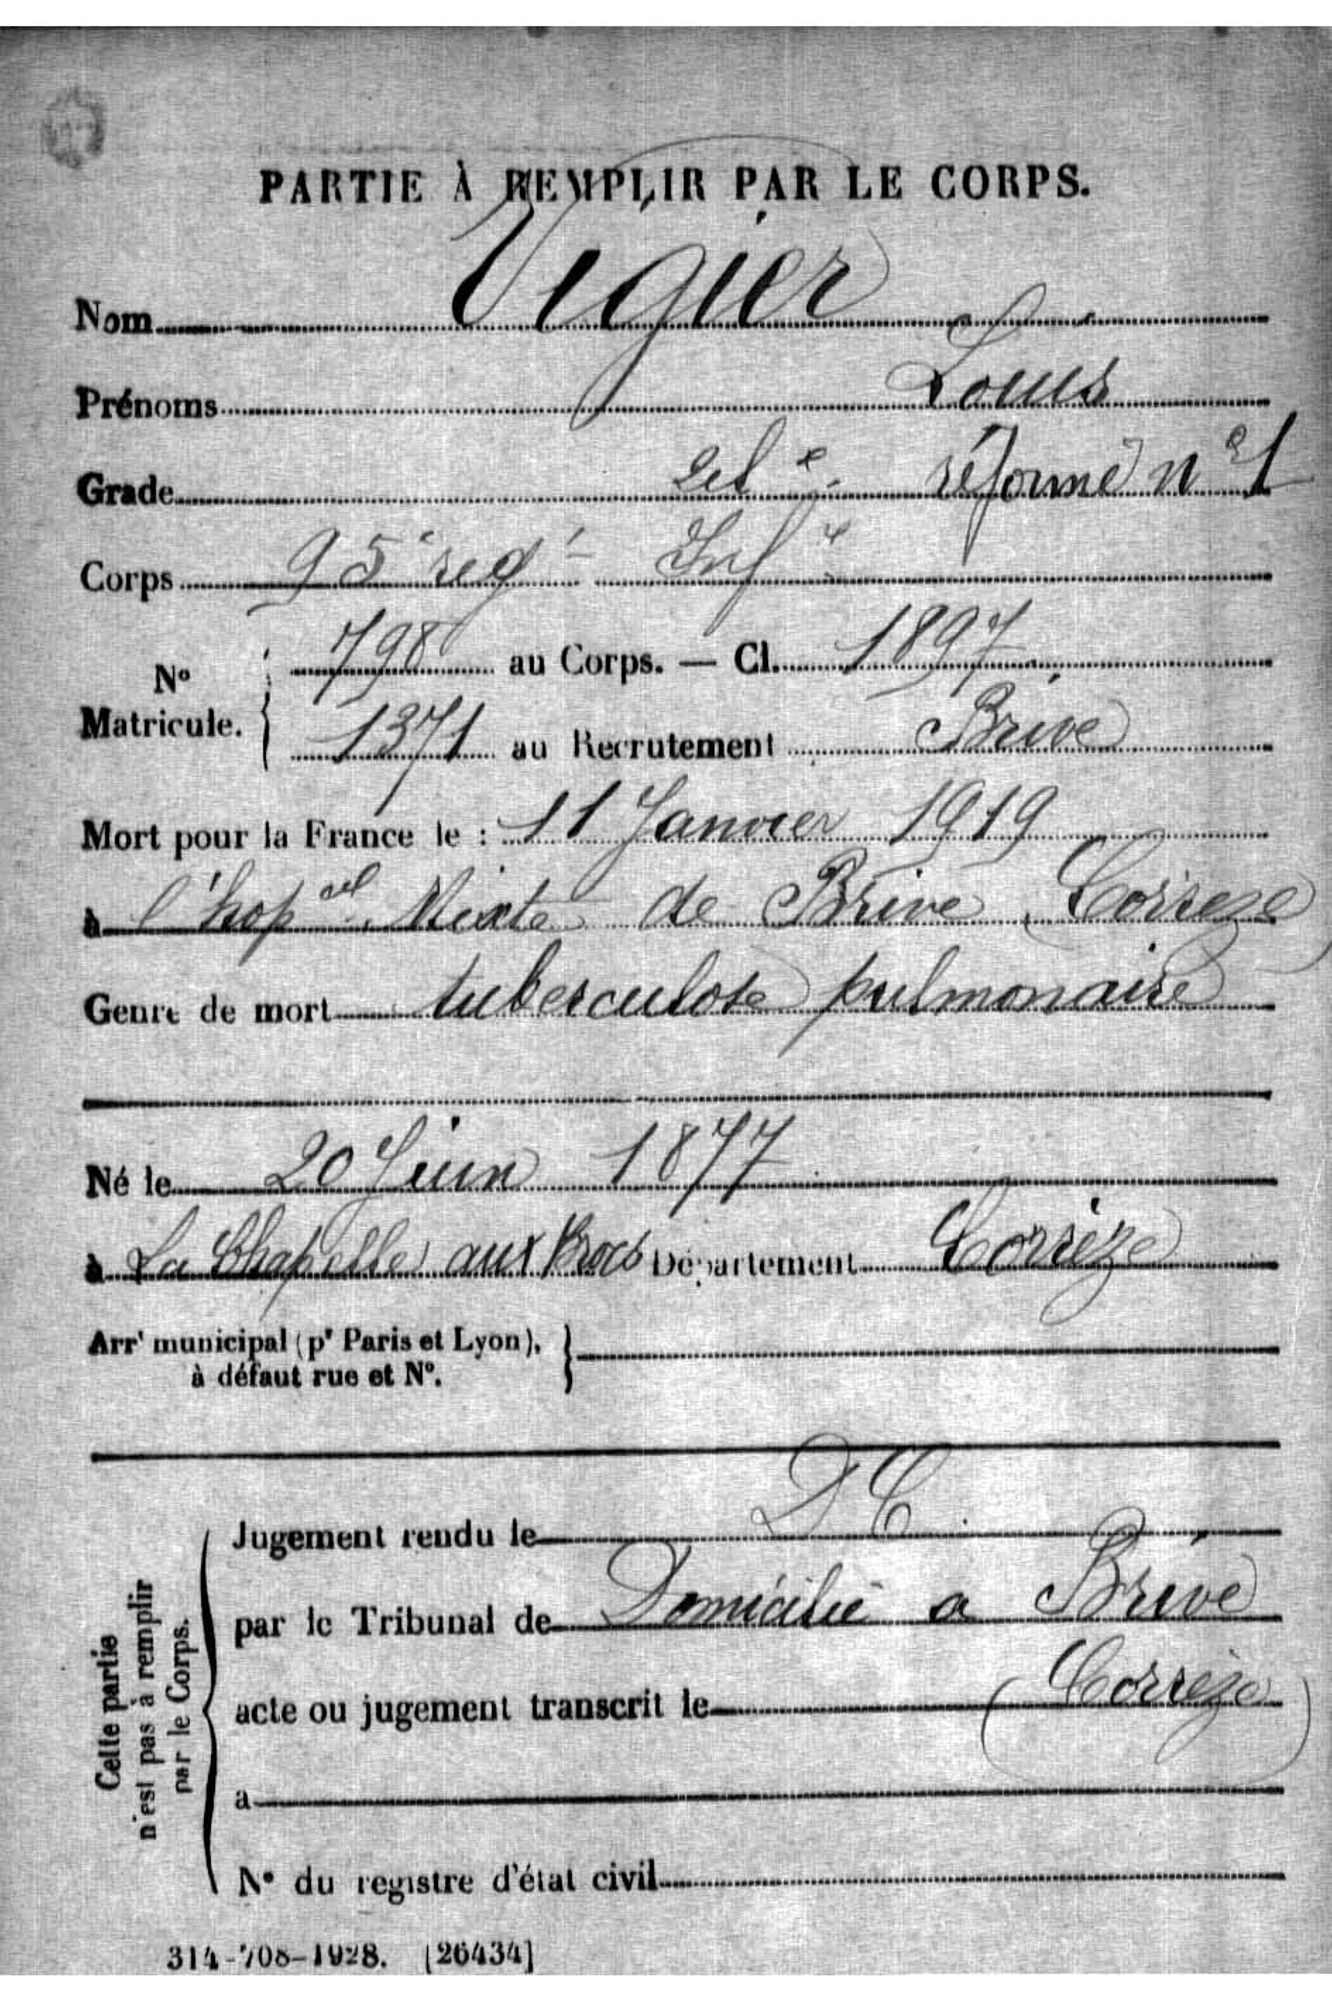 PARTIE À REMPLIR PAR LE CORPS.
Nom Vigier
Prénoms Louis
Grade 2e cl réformé n° 1
Corps 95e regt Infie
No Matricule. 798 au Corps. — Cl. 1897
1371 au Recrutement Brive
Mort pour la France le : 11 Janvier 1919
à l'hopal Mixte de Brive (Corrèze)
Genre de mort tuberculose pulmonaire
Né le 20 Juin 1877
à La Chapelle aux Brocs Département Corrèze
Arrt municipal (pr Paris et Lyon),
à défaut rue et N°.
Cette partie
n'est pas à remplir
par le Corps.
Jugement rendu le DC
par le Tribunal de Domicilié a Brive
acte ou jugement transcrit le (Corrèze)
a
N° du registre d'état civil
314-708-1928. [26434]